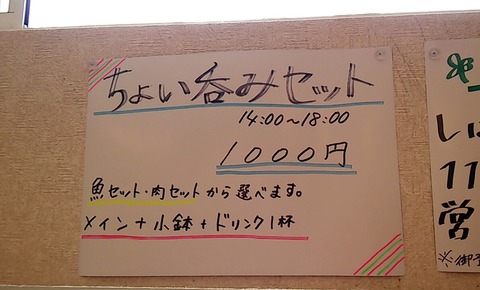 ちょい呑みセット
14:00~18:00
1000円
魚セット・肉セットから選べます。
メイン+小鉢+ドリンク1杯
11
営
※御予